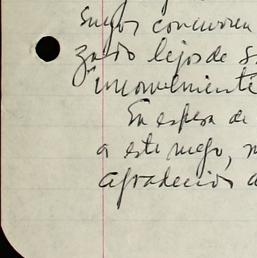 suyos concurren
zado lejos de s
inconveniente
En espera de
a este ruego, m
agradecidos a